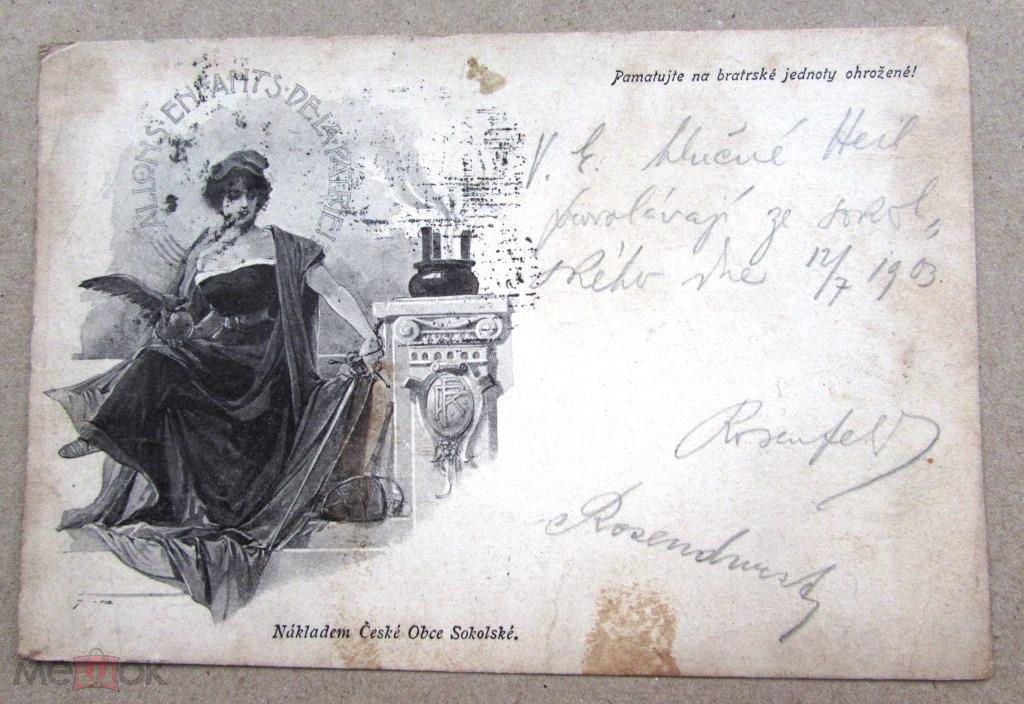 ALLONS·ENFANTS·DE LA PATRIE!
Pamatujte na bratrské jednoty ohrožené!
V. E. hlučné Heil
provolávají ze sokol„
ského dne 12/7 1903.
Rosenfeld
Rosendurst
Nákladem České Obce Sokolské.
МешОк